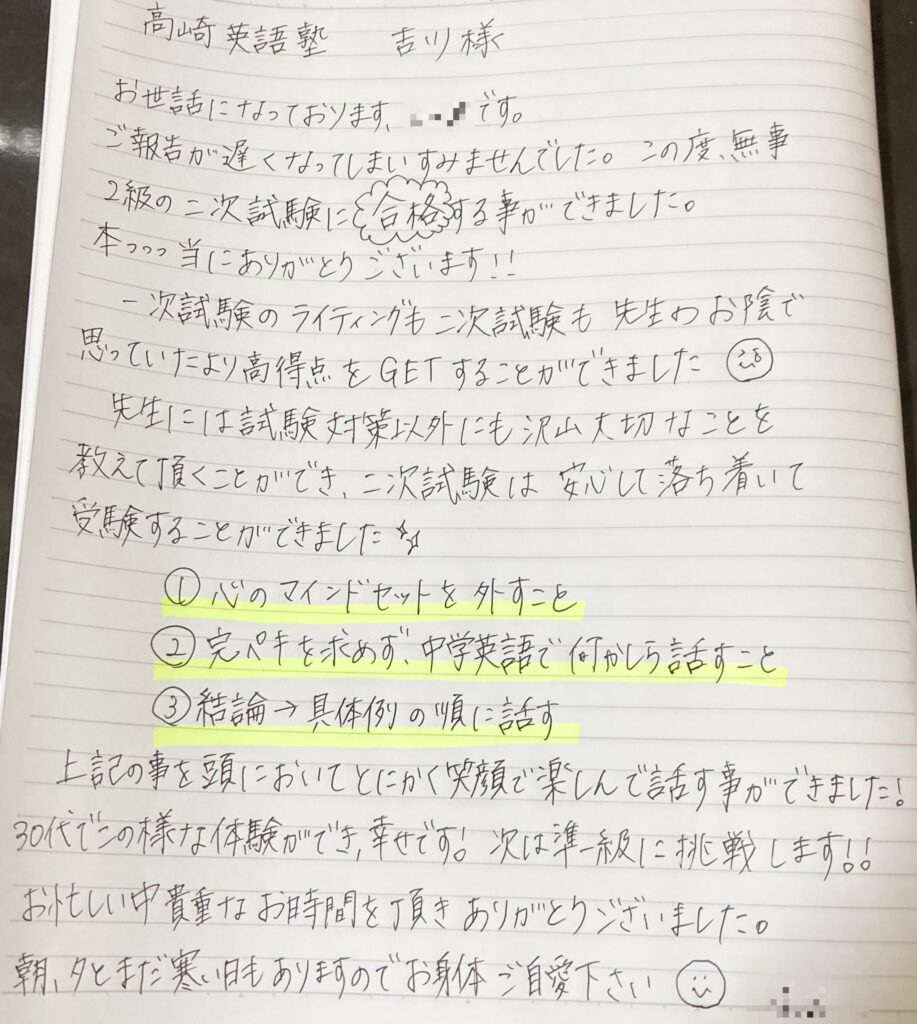 高崎英語塾 吉川様
お世話になっております、 です。
ご報告が遅くなってしまいすみませんでした。この度、無事
2級の二次試験に合格する事ができました。
本っっっ当にありがとうございます!!
一次試験のライティングも二次試験も先生のお陰で
思っていたより高得点をGETすることができました
先生には試験対策以外にも沢山大切なことを
教えて頂くことができ、二次試験は安心して落ち着いて
受験することができました☆
①心のマインドセットを外すこと
②完ペキを求めず、中学英語で何かしら話すこと
③結論→具体例の順に話す
上記の事を頭においてとにかく笑顔で楽しんで話す事ができました!
30代でこの様な体験ができ、幸せです!次は準一級に挑戦します!!
お忙しい中貴重なお時間を頂きありがとうございました。
朝、夕とまだ寒い日もありますのでお身体ご自愛下さい